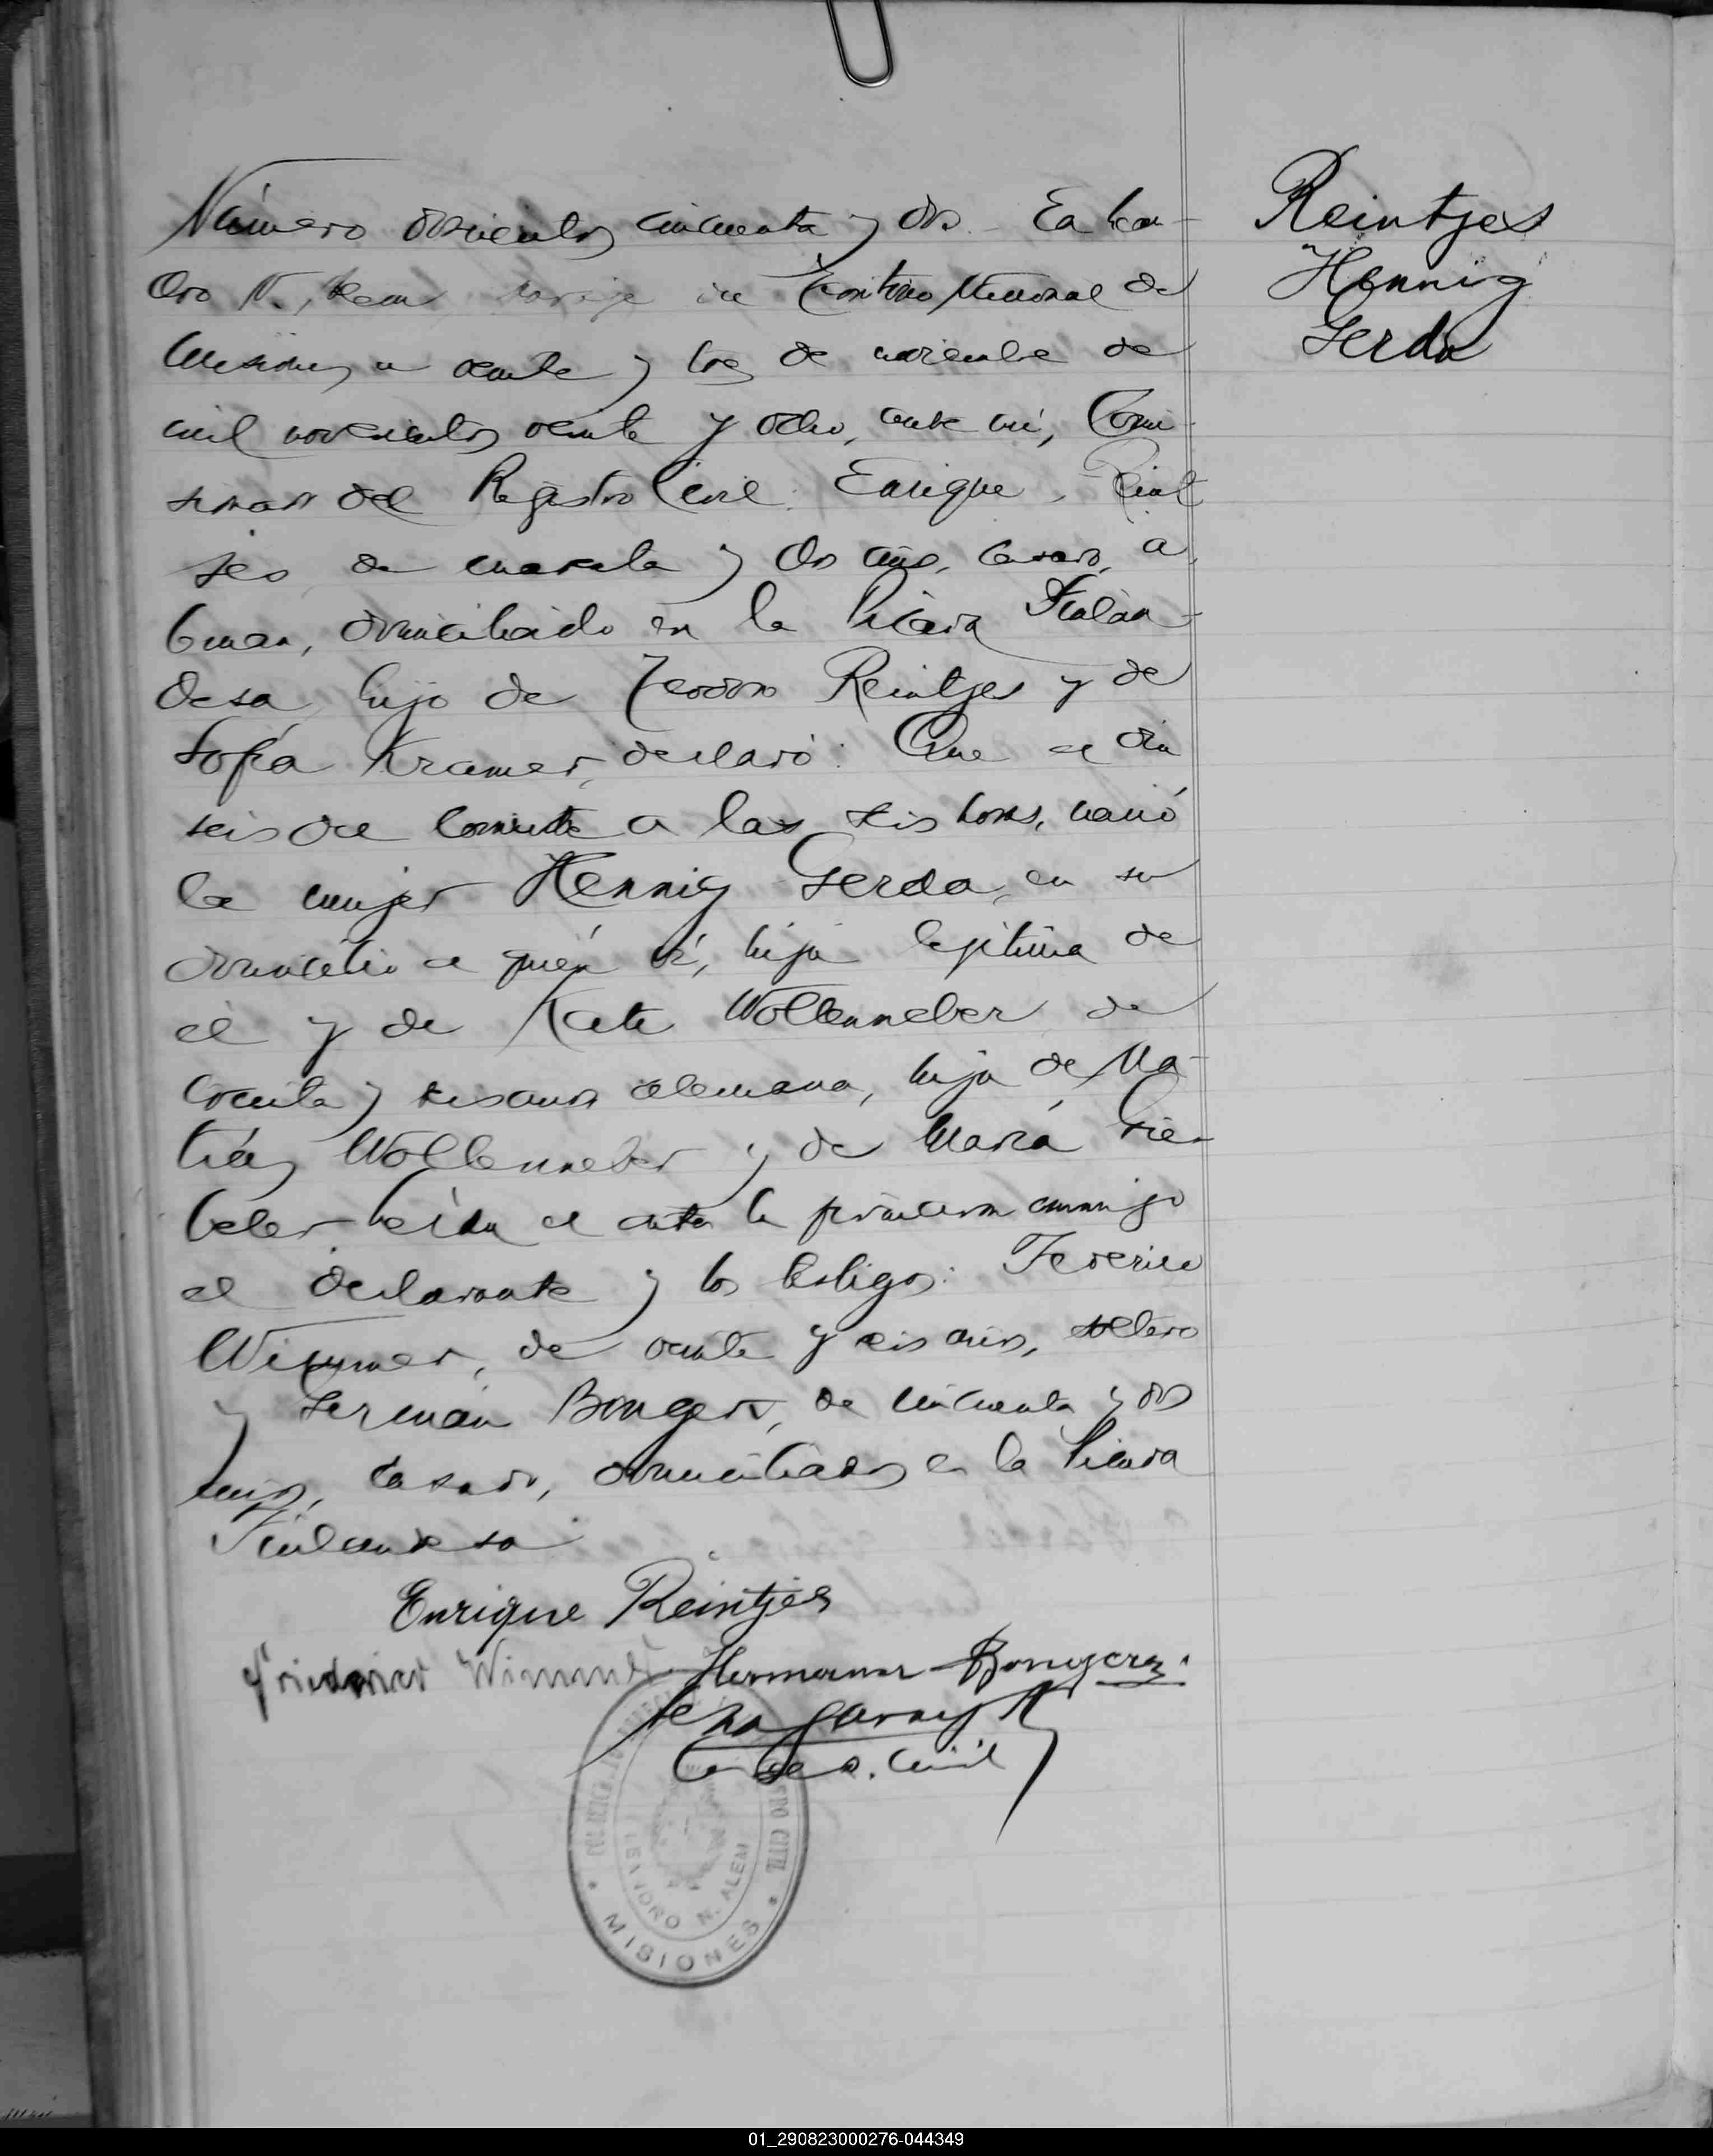 Número doscientos cincuenta y dos. En Lean-
dro N. Alem, paraje del Territorio Nacional de
Misiones, a veinte y tres de noviembre de
mil novecientos veinte y ocho, ante mí, Comi-
sionado del Registro Civil: Enrique Reint
jes de cuarenta y dos años, casado, a
leman, domiciliado en la Picada Finlan-
desa, hijo de Teodoro Reintjes y de
Sofía Kramer, declaró: Que el día
seis del corriente a las seis horas, nació
la mujer Hennig Gerda, en su
domicilio a quién ví, hija legítima de
él y de Kate Wollenneber de
treinta y años alemana, hija de Ma-
tías Wollenneber y de María
Leída el acta la firmaron conmigo
el declarante y los testigos: Federico
Wimmer, de veinte y seis años, soltero
y Germán Bongers, de cincuenta y dos
años, casado, domiciliados en la Picada
Finlandesa
Enrique Reintjes
Friedrich Wimmer Hermann Bongers.
Civil
REGISTRO CIVIL
LEANDRO N. ALEM
* MISIONES *
Reintjes
Hennig
Gerda
01_290823000276-044349